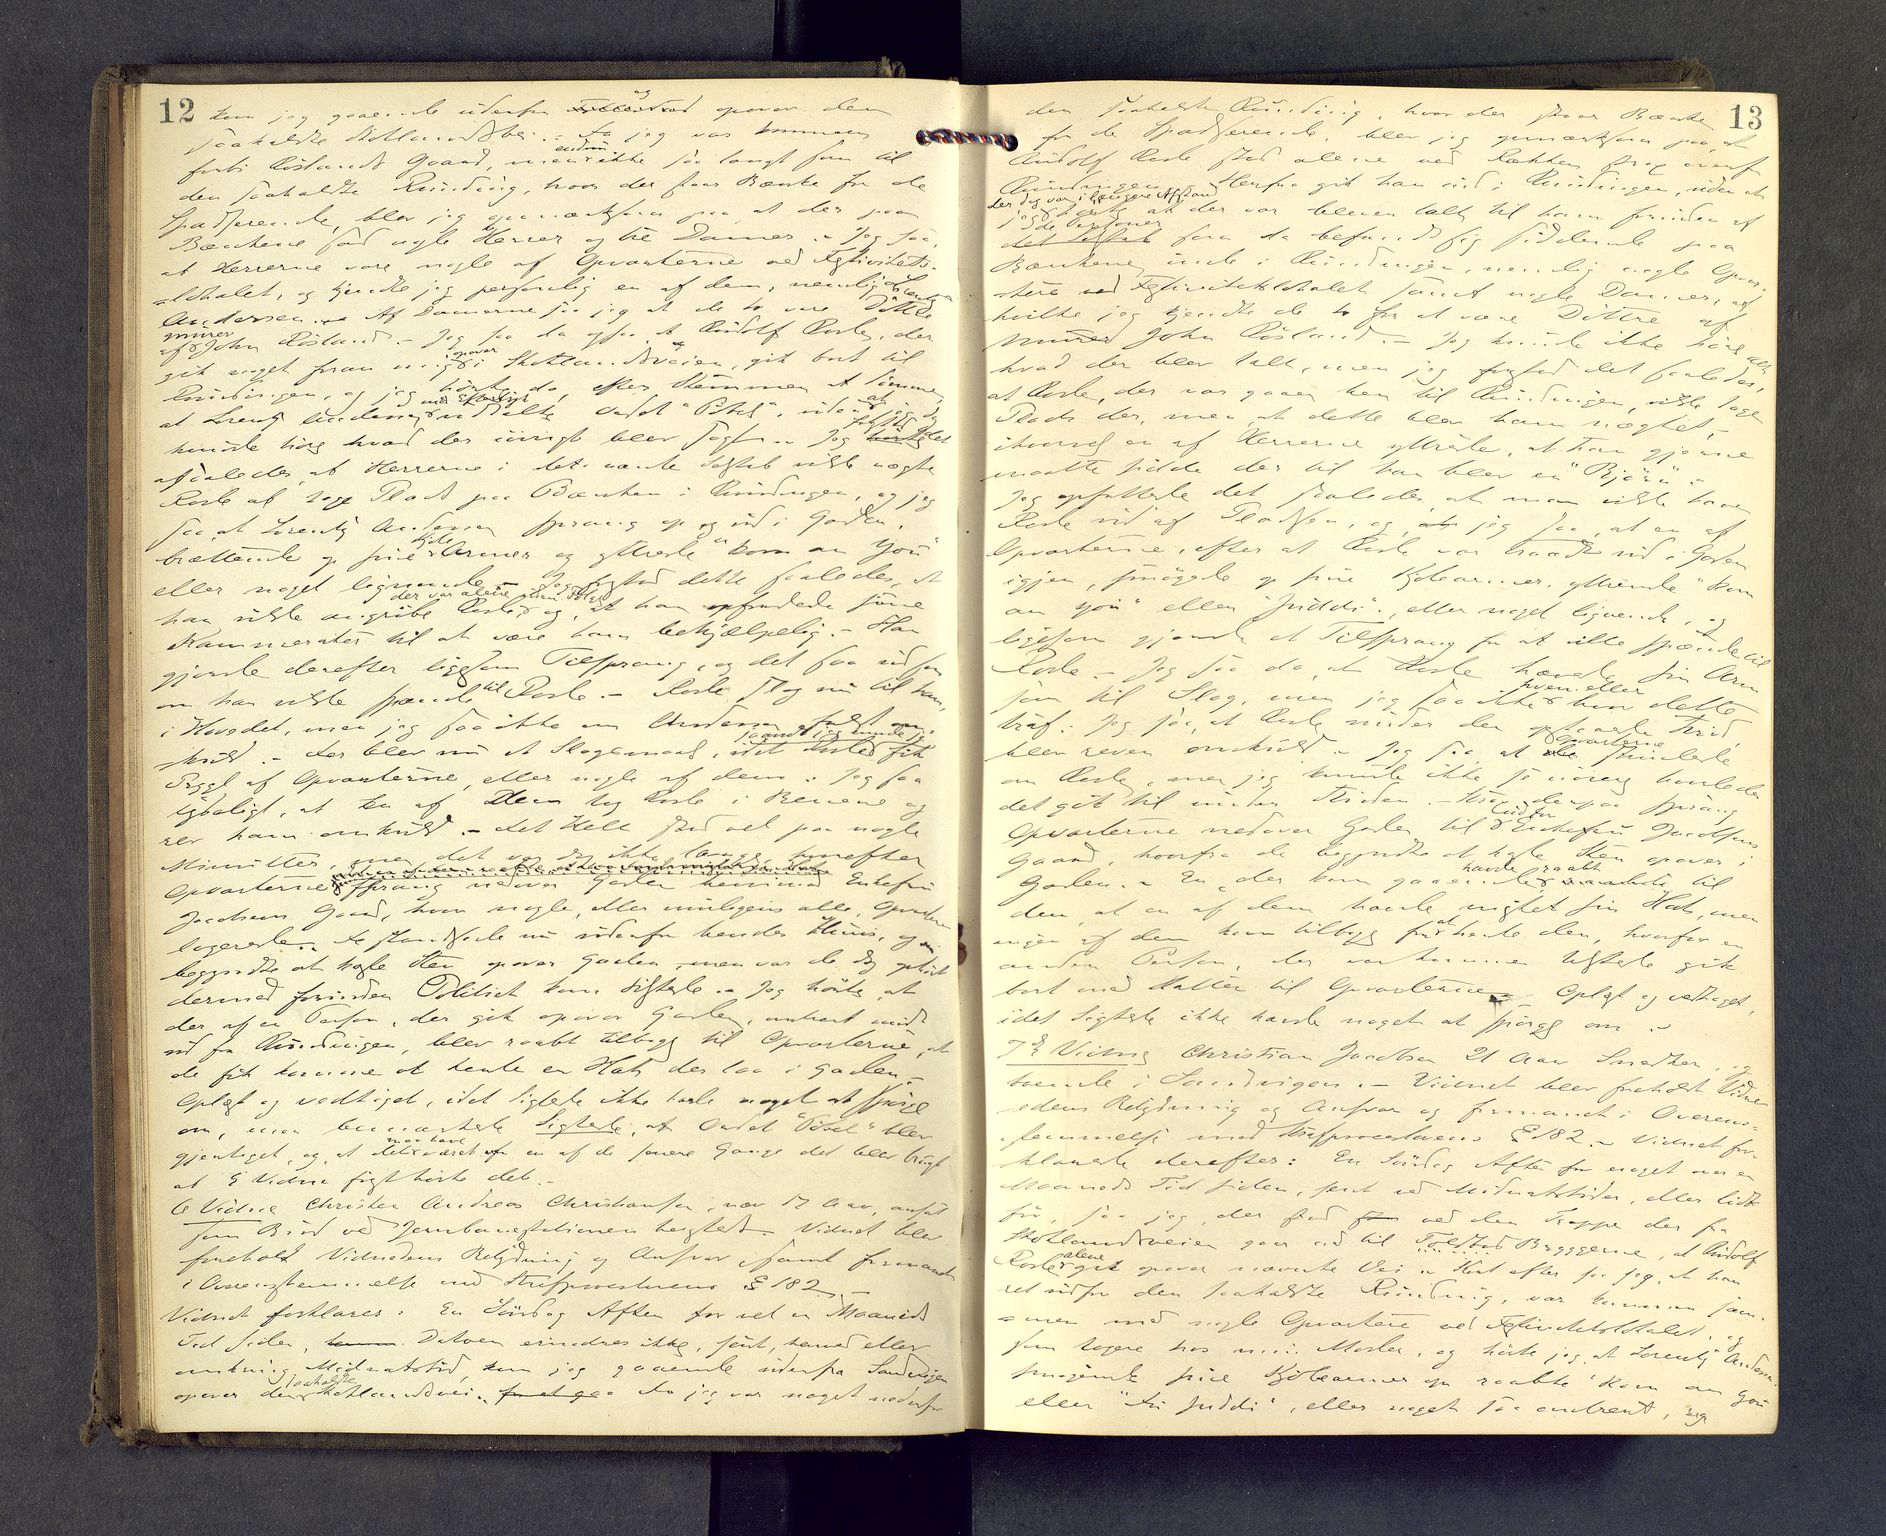 12
kom jeg gaaende udenfra og opover den
saakaldte Skotlandsvei. – Da jeg var kommen
forbi Røslands Gaard, men endnu ikke saa langt frem til
den saakaldte Rundning, hvor der staar Bænke for de
Spadserende, blev jeg opmærksom paa at der paa
Bænkene sad nogle Herrer og tre Damer. – Jeg saa,
at Herrerne vare nogle af Opvarterne ved Festivitets-
lokalet, og kjendte jeg personlig en af dem, nemlig Lorentz
Andersen. – Af Damerne saa jeg at de to vare Døttre
af murer John Røsland. – Jeg saa da ogsaa at Rudolf Rosle, der
gik noget foran mig opover i Skotlandsveien, gik bort til
Rundingen, og jeg hørte da, efter Stemmen at dømme,
at Lorentz Andersen udtalte Ordet "Pøbel", uden at jeg
kunde høre hvad der iøvrigt blev sagt. – Jeg forstod det
saaledes, at Herrerne i det nævnte Selskab vilde nægte
Rosle at tage Plads paa Bænken i Rundingen, og jeg
saa, at Lorentz Andersen sprang op og ud i Gaden,
brættende op sine Armer og yttrede "kom an you"
eller noget lignende. – Jeg forstod dette saaledes, at
han vilde angribe Rosle, der var alene, og at han opfordrede sine
Kammerater til at være ham behjælpelig. – Han
gjorde derefter ligesom Tilsprang, og det saa ud som
om han vilde spænde til Rosle. – Rosle slog nu til ham
i Hovedet, men jeg saa ikke om Andersen faldt om-
kuld. – Der blev nu et Slagsmaal, idet Rosle fik
Prygl af Opvarterne, eller nogle af dem. – Jeg saa
tydeligt, at en af Dem tog Rosle i Benene og
rev ham omkuld. – Det Hele stod vel paa nogle
Minutter, men det var ikke længe, hvorefter
Opvarterne sprang nedover Gaden henimod Enkefru
Jacobsens Gaard, hvor nogle, eller muligens alle, Opvarterne
logerede. – De standsede nu udenfor hendes Huus, og
begyndte at kaste Sten opover Gaden, men var de dog ophørt
dermed forinden Politiet kom tilstede. – Jeg hørte, at
der af en Person, der gik opover Gaden, omtrent midt
ud for Rundingen, blev raabt tilbage til Opvarterne, at
de fik komme at hente en Hat der laa i Gaden. –
Oplæst og vedtaget, idet Sigtede ikke havde noget at spørge
om, men bemærkede Sigtede, at Ordet "Pøbel" blev
gjentaget, og at det maa have været en af de senere Gange det blev brugt
at 5 Vidne først hørte det. –
6 Vidne Christen Andreas Christiansen, nær 17 Aar, ansat
som Bud ved Jernbanestationen hersteds. – Vidnet blev
foreholdt Vidneedens Betydning og Ansvar samt formanet
i Overensstemmelse med Strafproceslovens § 182. –
Vidnet forklarer: En Søndag Aften for vel en Maaneds
Tid siden, Datoen erindres ikke, sent, henad eller
omkring Midnatstid, kom jeg gaaende udenfra Sandvigen
opover den saakaldte Skotlandsvei. – Da jeg var noget nedenfor
13
den saakaldte Runding, hvor der staar Bænke
for de Spadserende, blev jeg opmærksom paa, at
Rudolf Rosle stod alene ved Rækken strax ovenfor
Rundingen. – Herfra gik han ud i Rundingen, uden at
jeg, der dog var i længere Afstand, hørte at der var bleven talt til ham forinden af
de Personer som da befandt sig siddende paa
Bænkene inde i Rundingen, nemlig nogle Opvar-
tere ved Festivitetslokalet samt nogle Damer, af
hvilke jeg kjendte de to for at være Døttre af
murer John Røsland. – Jeg kunde ikke høre alt
hvad der blev talt, men jeg forstod det saaledes,
at Rosle, der var gaaen hen til Rundingen, vilde tage
Plads der, men at dette blev ham nægtet,
ihvorvel en af Herrerne yttrede, at han gjerne
maatte sidde der til han blev en "Bjørn". –
Jeg opfattede det saaledes, at man vilde have
Rosle ud af Pladsen, og jeg saa, at en af
Opvarterne, efter at Rosle var traadt ud i Gaden
igjen, smøgede op sine Kjolearmer, yttrende "kom
an you" eller "Juddi", eller noget lignende, og
ligesom gjorde et Tilsprang for at ville spænde til
Rosle. – Jeg saa da, at Rosle hævede sin Arm
som til Slag, men jeg saa ikke hvem eller hvor dette
traf. – Jeg saa, at Rosle under den opstaaede Strid,
blev reven omkuld. – Jeg saa, at Opvarterne flokkede
om Rosle, men jeg kunde ikke se nøiere hvorledes
det gik til under Striden. – Strax derpaa sprang
Opvarterne nedover Gaden til udfor Enkefru Jacobsens
Gaard, hvorfra de begyndte at kaste Sten opover i
Gaden. – En, der kom gaaende, havde raabt til
dem, at en af dem havde mistet sin Hat, men
ingen af dem kom tilbage for at hente den, hvorfor en
anden Person, der var kommen tilstede gik
bort med Hatten til Opvarterne. – Oplæst og vedtaget,
idet Sigtede ikke havde noget at spørge om. –
7de Vidne Christian Jacobsen 21 Aar Snedker,
boende i Sandvigen. – Vidnet blev foreholdt Vidne-
edens Betydning og Ansvar og formanet i Overens-
stemmelse med Strafproceslovens § 182. – Vidnet for-
klarede derefter: En Søndag Aften for noget over en
Maaneds Tid siden, sent ved Midnatstider, eller lidt
før, saa jeg, der stod ved den Trappe der fra
Skotlandsveien gaar ud til Toldbod Bryggerne, at Rudolf
Rosle alene gik opover nævnte Vei. – Kort efter saa jeg, at han
ret udfor den saakaldte Runding, var kommen sam-
men med nogle Opvartere ved Festivitetslokalet, og
som logere hos min Moder, og hørte jeg, at Lorentz Andersen,
smøgende sine Kjolearmer op raabte "kom an you"
eller "Juddi", eller noget saa omtrent, og